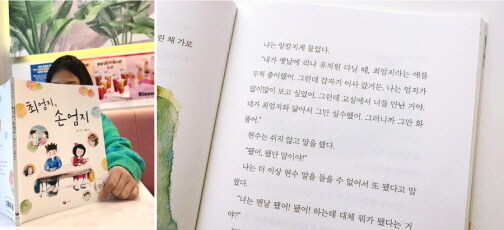 최엄지,
손엄지
린 채 가로
나는 앙칼지게 물었다.
"내가 옛날에 리나 유치원 다닐 때, 최엄지라는 애를
무척 좋아했어. 그런데 갑자기 이사 갔거든. 나는 엄지가
많이많이 보고 싶었어. 그런데 교실에서 너를 만난 거야.
네가 최엄지와 닮아서 그만 실수했어. 그러니까 그만 화
풀어."
현수는 쉬지 않고 말을 했다.
"됐어, 됐단 말이야!"
나는 더 이상 현수 말을 들을 수 없어서 또 됐다고 말
했다.
"너는 맨날 됐어! 됐어! 하는데 대체 뭐가 됐다는 거